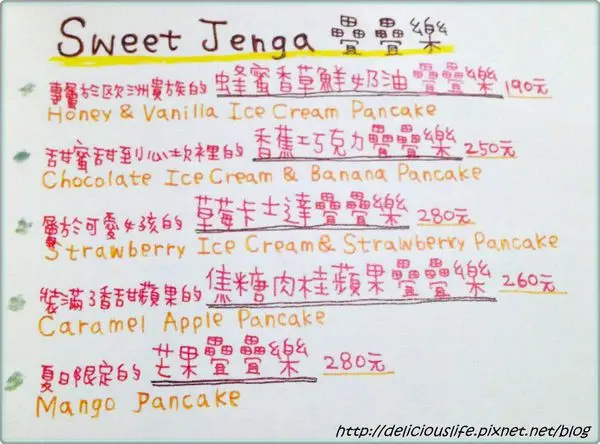 Sweet Jenga 疊疊樂
專屬於歐洲貴族的 蜂蜜香草鮮奶油疊疊樂 190元
Honey & Vanilla Ice Cream Pancake
甜蜜甜到心坎裡的 香蕉巧克力疊疊樂 250元
Chocolate Ice Cream & Banana Pancake
屬於可愛女孩的 草莓卡士達疊疊樂 280元
Strawberry Ice Cream & Strawberry Pancake
裝滿了香甜蘋果的 焦糖肉桂蘋果疊疊樂 260元
Caramel Apple Pancake
夏日限定的 芒果疊疊樂 280元
Mango Pancake
http://deliciouslife.pixnet.net/blog